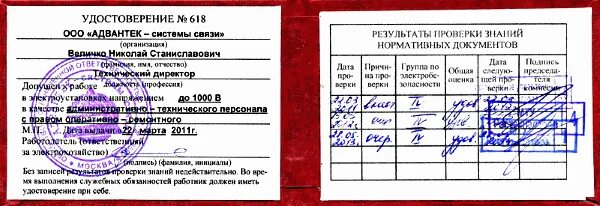 УДОСТОВЕРЕНИЕ № 618
ООО «АДВАНТЕК – системы связи»
(организация)
Величко Николай Станиславович
(фамилия, имя, отчество)
Технический директор
Допущен к работе должность (профессия)
в электроустановках напряжением до 1000 В
в качестве административно – технического персонала
с правом оперативно – ремонтного
М.П. Дата выдачи 22 марта 2011г.
Работодатель (ответственный
за электрохозяйство)
(подпись) (фамилия, инициалы)
Без записей результатов проверки знаний недействительно. Во вре-
мя выполнения служебных обязанностей работник должен иметь
удостоверение при себе.
РЕЗУЛЬТАТЫ ПРОВЕРКИ ЗНАНИЙ
НОРМАТИВНЫХ ДОКУМЕНТОВ
Дата про- верки
Причи- на про- верки
Группа по электробе- зопасности
Общая оценка
Дата следую- щей про- верки
Подпись председа- теля комиссии
IV удов.
очер. IV удов
2013г. очер. IV удов.
МОСКВА